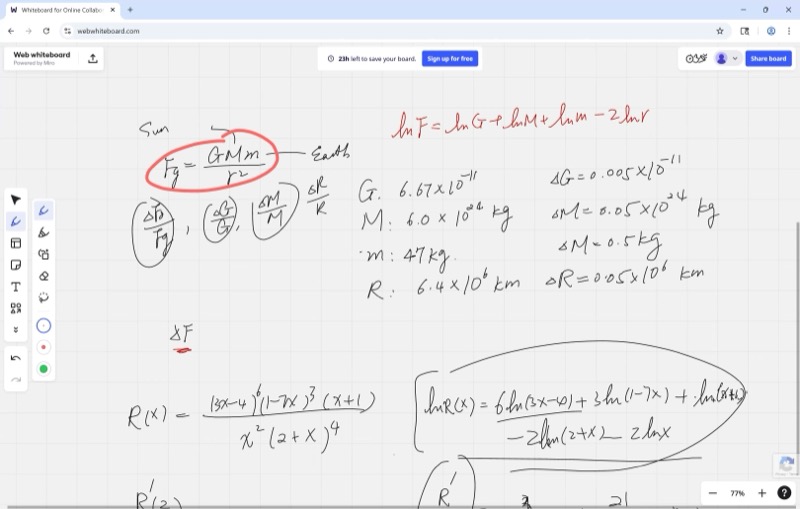 Whiteboard for Online Collabo
webwhiteboard.com
Web whiteboard
Powered by Miro
23h left to save your board.
Sign up for free
Share board
Sun
ln F = ln G + ln M + ln m - 2 ln r
Fg = GMm / r²
Earth
ΔFg/Fg, ΔG/G, ΔM/M ΔR/R
G. 6.67 x 10^-11 ΔG = 0.005 x 10^-11
M: 6.0 x 10^24 kg ΔM = 0.05 x 10^24 kg
m: 47 kg. ΔM = 0.5 kg
R: 6.4 x 10^6 km ΔR = 0.05 x 10^6 km
ΔF
R(x) = (3x-4)^6 (1-7x)^3 (x+1) / x² (2+x)^4
ln R(x) = 6 ln(3x-4) + 3 ln(1-7x) + ln(x+1)
- 2 ln x
R'(2)
R'
21
77%